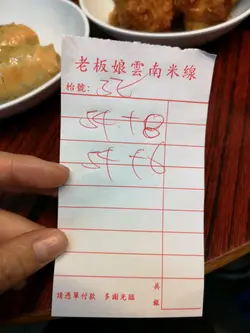 老板娘雲南米線
枱號：32
54 + 8
54 + 6
共
銀
請憑單付款 多謝光臨